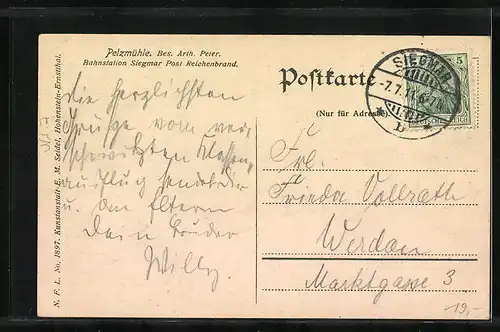 Pelzmühle. Bes. Arth. Peter.
Bahnstation Siegmar Post Reichenbrand.
N. F. L. No. 1897. Kunstanstalt E. M. Seidel, Hohenstein-Ernstthal.
die herzlichsten
Grüße vom ver-
schwitzten Klassen-
ausflug sendet Dir
u. den Eltern
Dein Bruder
Willy.
Postkarte
(Nur für Adresse)
SIEGMAR
7.7.11. 6-7N.
b
5
Frl.
Frieda Vollrath
Werdau
Marktgasse 3
19,-